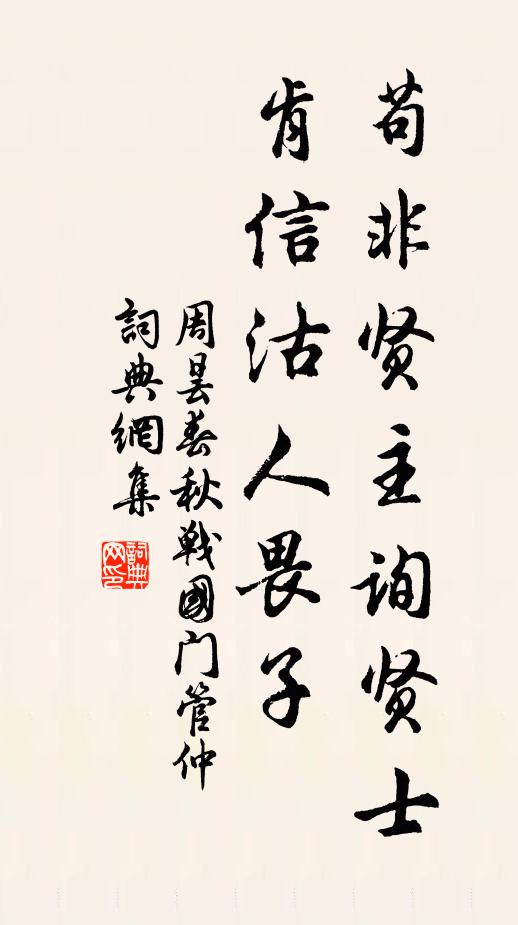 苟非贤主询贤士
肯信沽人畏子
周昙春秋戦國门管仲
詞典網集
詞典
网印